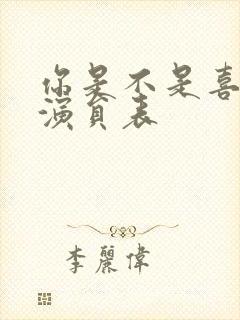 你是不是喜
演員表
李麗偉